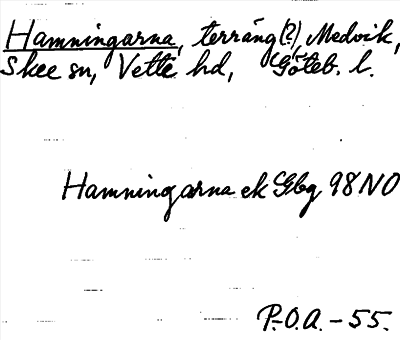 Hamningarna, terräng(?), Medvik,
Skee sn, Vette hd, Göteb. l.
Hamningarna ek Gbg 98NO
P.O.A. - 55.